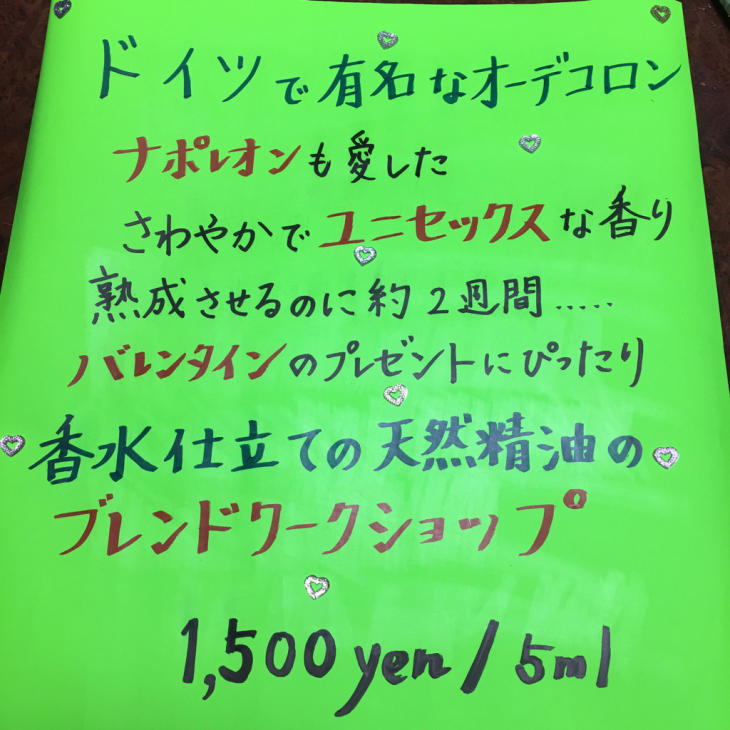 ドイツで有名なオーデコロン
ナポレオンも愛した
さわやかでユニセックスな香り
熟成させるのに約2週間.....
バレンタインのプレゼントにぴったり
香水仕立ての天然精油の
ブレンドワークショップ
1,500yen/5ml